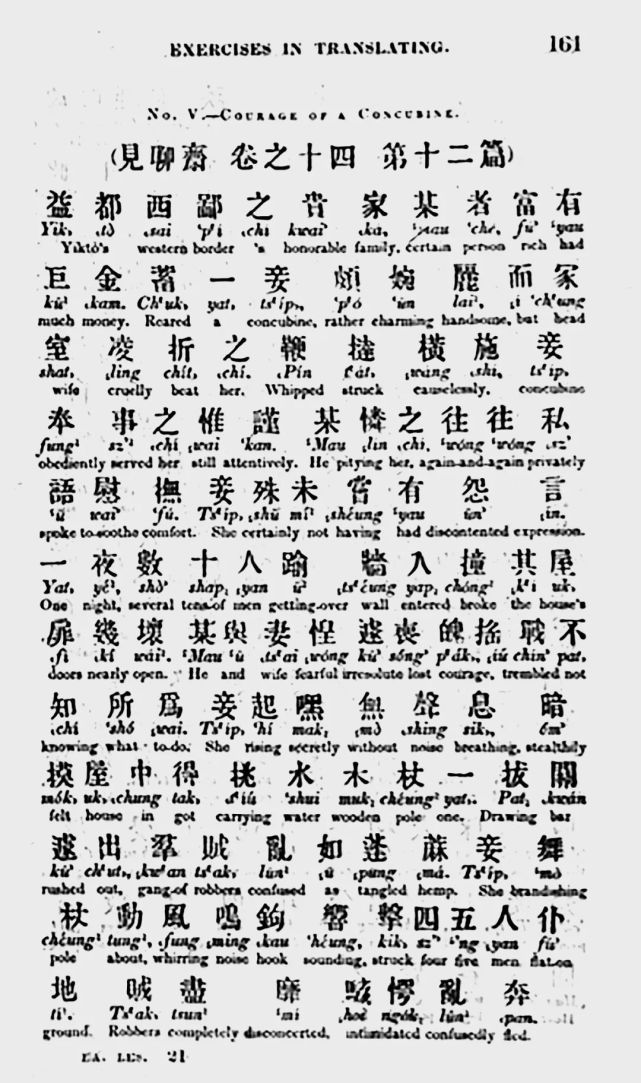 EXERCISES IN TRANSLATING. 161
No. V.—Courage of a Concubine.
(見聊齋 卷之十四 第十二篇)
益都西鄙之貴家某者富有
Yik, ˏtò ˏsai ʻpʻi ˏchi kwaiʼ ˏka, ʻmau ʻché, fúʼ ʻyau
Yiktò's western border 's honorable family, certain person rich had
巨金蓄一妾頗婉麗而冢
kü² ˏkam. Chʻuk, yat, tsʻíp,, ʻpʻó ʻün lai², ˏi ʻchʻung
much money. Reared a concubine, rather charming handsome, but head
室凌折之鞭撻橫施妾
shat, ˏling chít, ˏchí. ˏPín tʻát, ˏwáng ˏshi, tsʻíp,
wife cruelly beat her. Whipped struck causelessly, concubine
奉事之惟謹某憐之往往私
fung² sz² ˏchí ˏwai ʻkan. ʻMau ˏlín ˏchi, ʻwóng ʻwóng ˏsz
obediently served her still attentively. He pitying her, again-and-again privately
語慰撫妾殊未嘗有怨言
ʻü waiʼ ʻfú. Tsʻíp, ˏshü mí² ˏshéung ʻyau ünʼ ˏín.
spoke to-soothe comfort. She certainly not having had discontented expression.
一夜數十人踰牆入撞其屋
Yat, yé², shòʼ shap, ˏyan ˏü ˏtsʻéung yap, chóng² ˏkʻi uk,
One night, several tens-of men getting-over wall entered broke the house's
扉幾壞某與妻惶遽喪魄搖戰不
ˏfi ˏkí wái². ʻMau ʻü ˏtsʻai ˏwóng kü² sóngʼ pʻák,, ˏiú chinʼ pat,
doors nearly open. He and wife fearful irresolute lost courage, trembled not
知所為妾起嘿無聲息暗
ˏchí ʻshó ˏwai. Tsʻíp, ʻhí mak, ˏmò ˏshing sik,, ómʼ
knowing what to-do. She rising secretly without noise breathing, stealthily
摸屋中得挑水木杖一拔關
mók, uk, ˏchung tak, ˏtʻiú ʻshui muk, chéung² yat,. Pat, ˏkwán
felt house in got carrying water wooden pole one. Drawing bar
遽出羣賊亂如蓬蔴妾舞
kü² chʻut,, ˏkwʻan tsʻak, lün² ˏü ˏpung ˏmá. Tsʻíp, ʻmò
rushed out, gang-of robbers confused as tangled hemp. She brandishing
杖動風鳴鉤響擊四五人仆
chéung² tung², ˏfung ˏming ˏkau ʻhéung, kik, szʼ ʻng ˏyan fúʼ
pole about, whirring noise hook sounding, struck four five men flat-on
地賊盡靡駭愕亂奔
ti². Tsʻak, tsun² ʻmi ˏhoi ngók, lün² ˏpan.
ground. Robbers completely disconcerted, intimidated confusedly fled.
EA. LES. 21